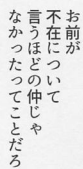 お前が
不在について
言うほどの仲じゃ
なかったってことだろ